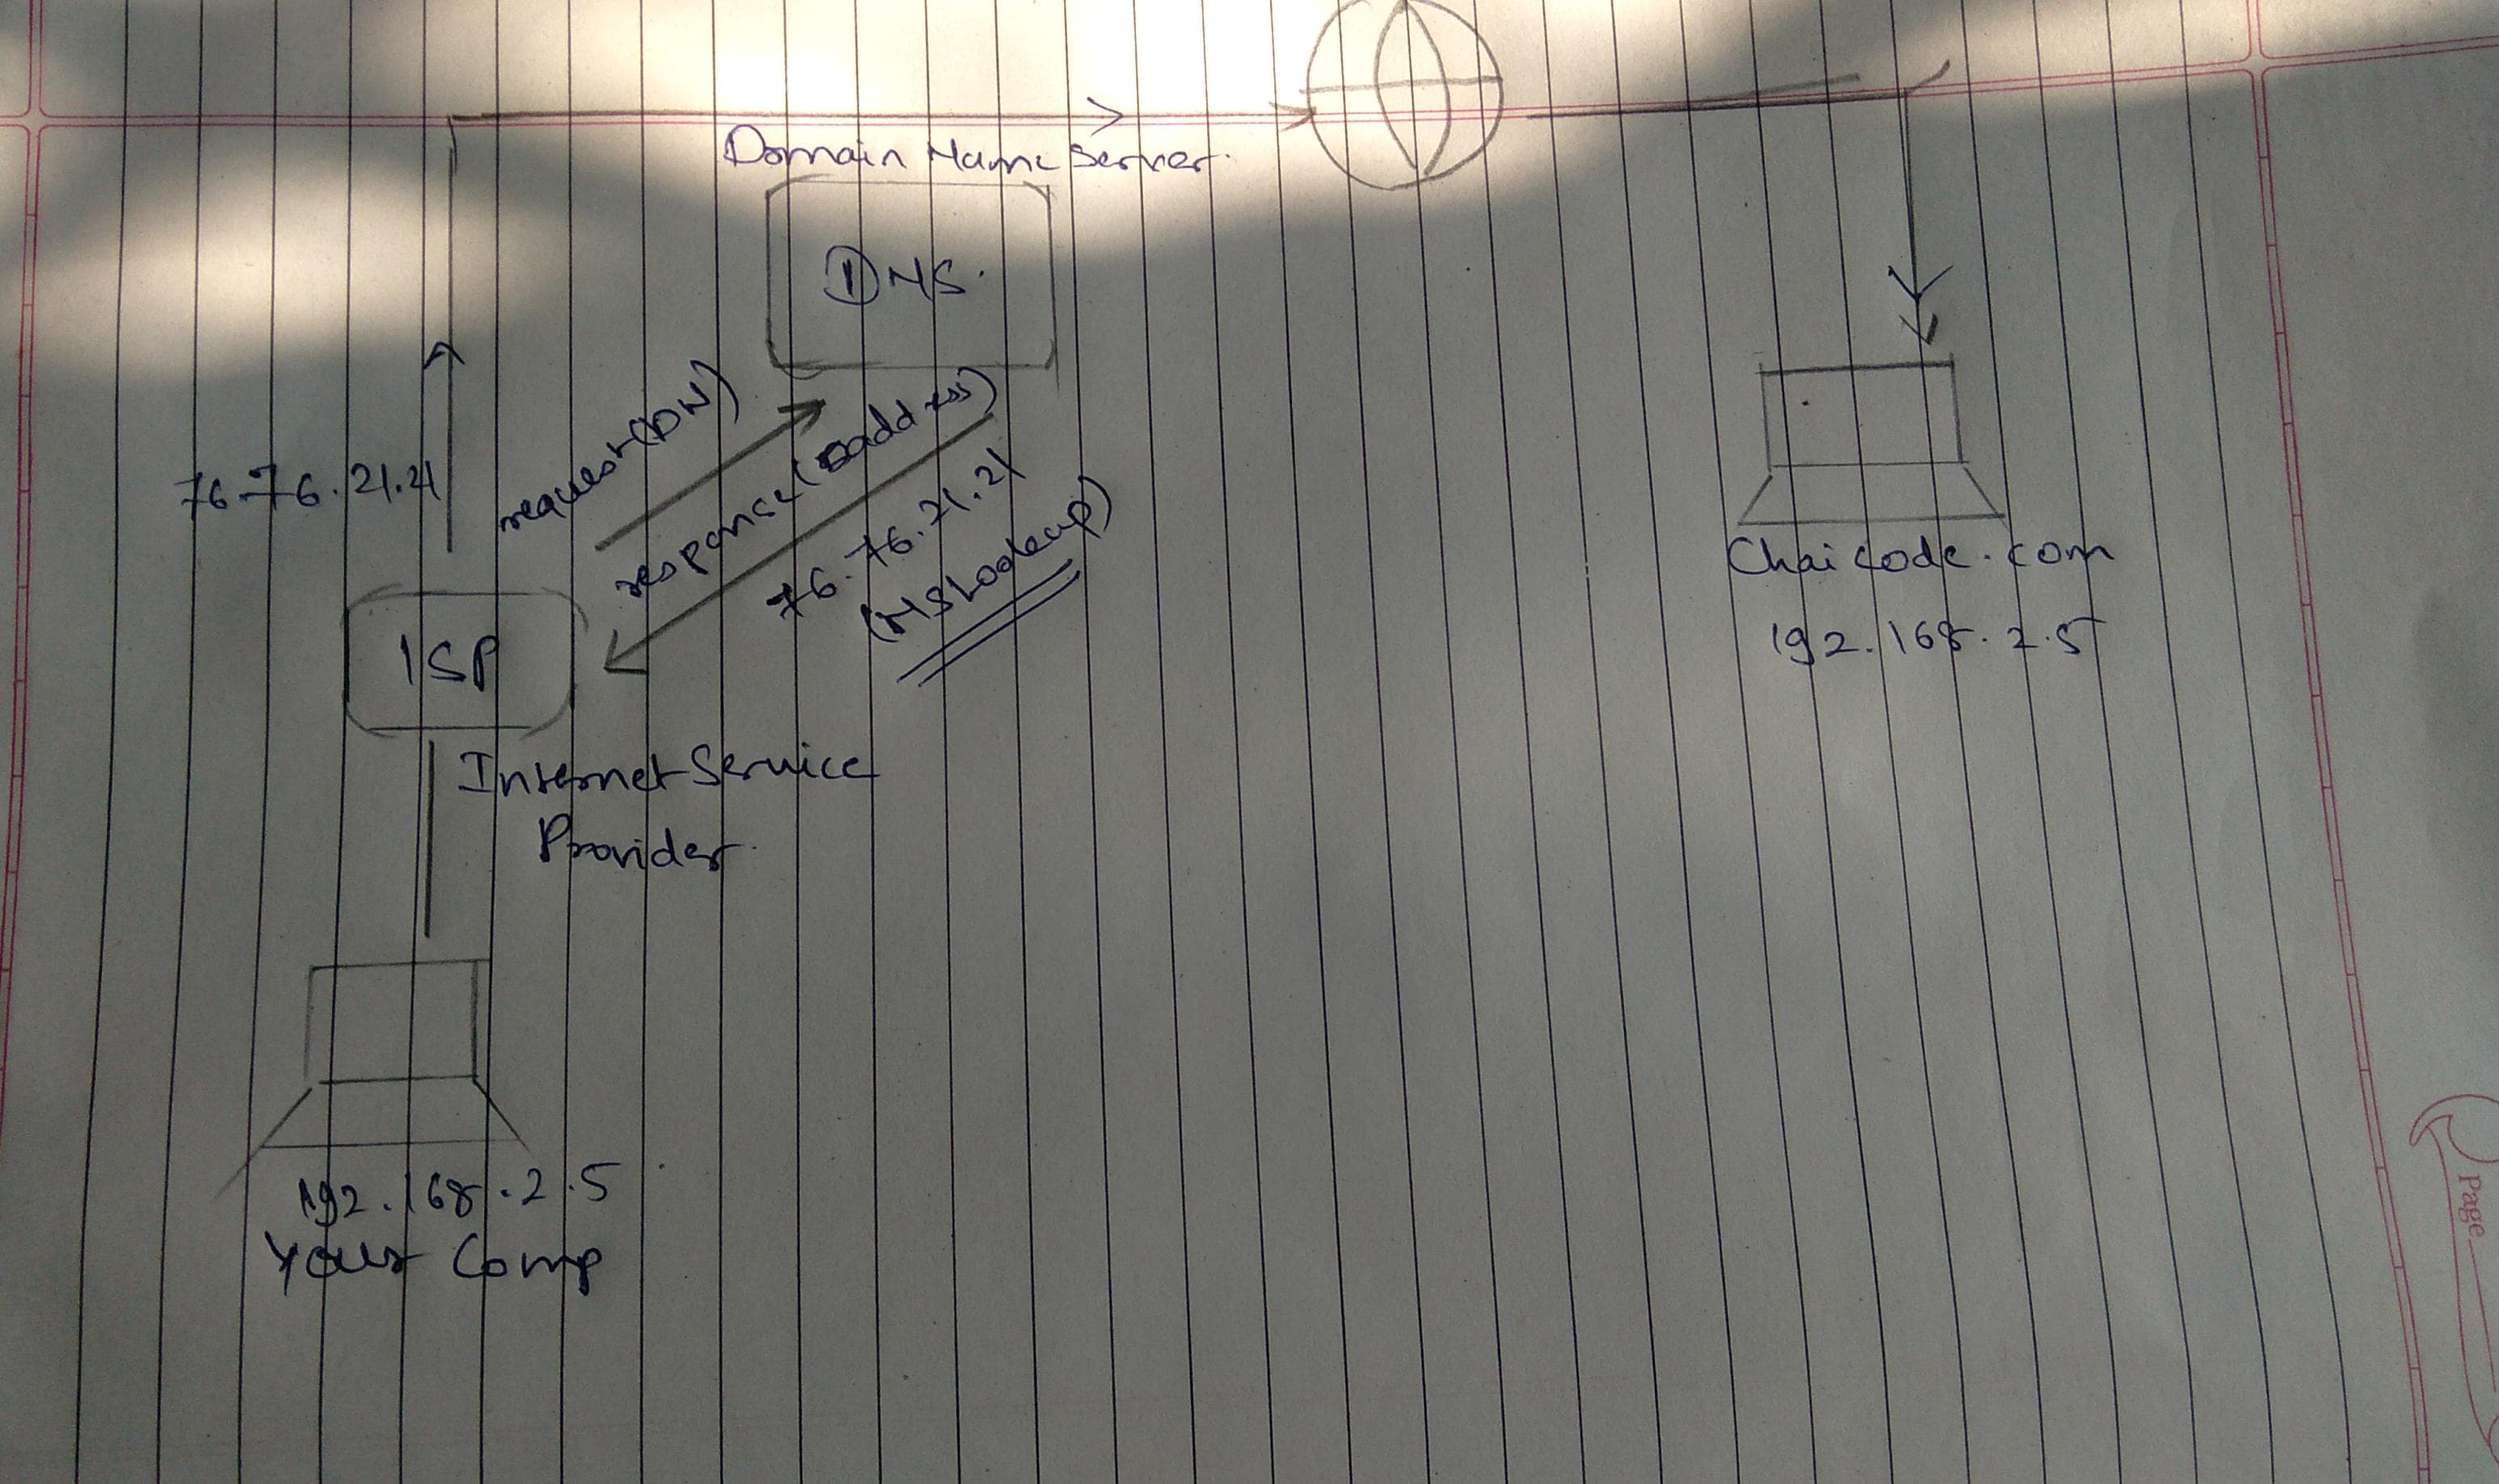 Domain Name Server.
DNS.
request(DN)
response(address)
76.76.21.21
(NSLookup)
76.76.21.21
ISP
Internet Service
Provider.
192.168.2.5
Your Comp
Chaicode.com
192.168.2.5
Page